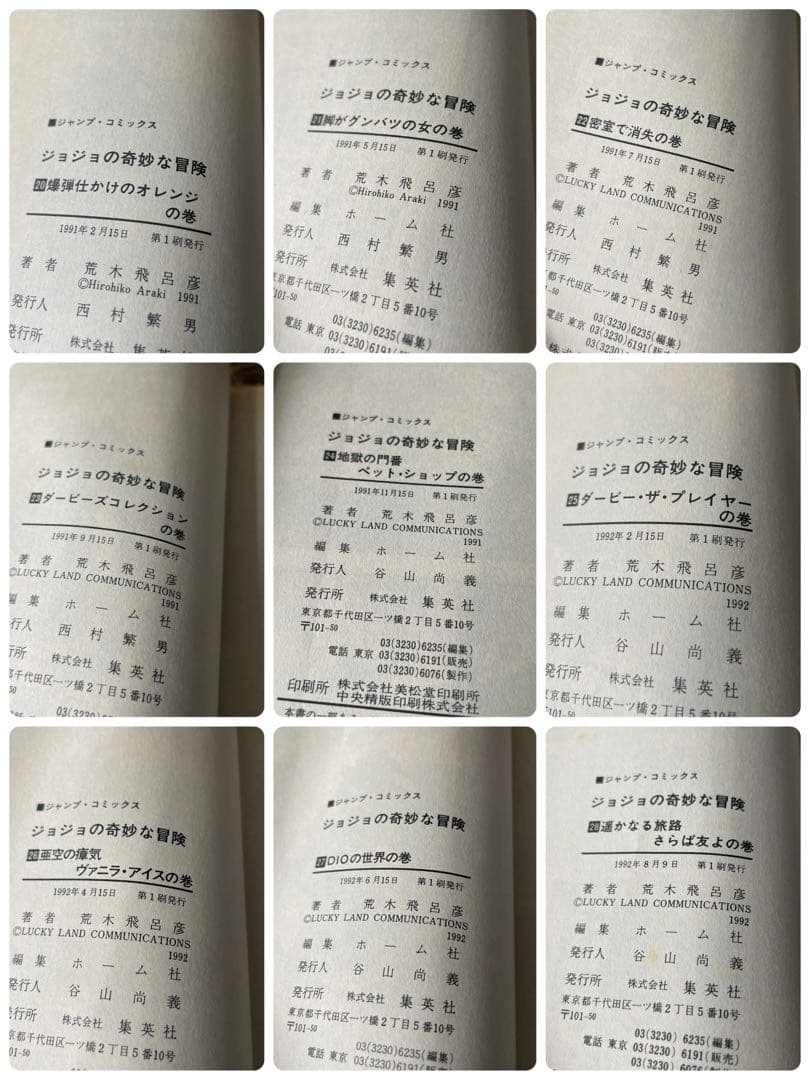 ■ジャンプ・コミックス
ジョジョの奇妙な冒険
20爆弾仕かけのオレンジ
の巻
1991年2月15日 第1刷発行
著者 荒木飛呂彦
©Hirohiko Araki 1991
発行人 西村繁男
発行所 株式会社 集英
■ジャンプ・コミックス
ジョジョの奇妙な冒険
21脚がグンバツの女の巻
1991年5月15日 第1刷発行
著者 荒木飛呂彦
©Hirohiko Araki 1991
編集 ホーム社
発行人 西村繁男
発行所 株式会社 集英社
東京都千代田区一ツ橋2丁目5番10号
〒101-50
03(3230)6235(編集)
電話 東京 03(3230)6191(販売)
■ジャンプ・コミックス
ジョジョの奇妙な冒険
22密室で消失の巻
1991年7月15日 第1刷発行
著者 荒木飛呂彦
©LUCKY LAND COMMUNICATIONS
1991
編集 ホーム社
発行人 西村繁男
発行所 株式会社 集英社
東京都千代田区一ツ橋2丁目5番10号
〒101-50
03(3230)6235(編集)
電話 東京 03(3230)6191(販売)
■ジャンプ・コミックス
ジョジョの奇妙な冒険
23ダービーズコレクション
の巻
1991年9月15日 第1刷発行
著者 荒木飛呂彦
©LUCKY LAND COMMUNICATIONS
1991
編集 ホーム社
発行人 西村繁男
発行所 株式会社 集英社
東京都千代田区一ツ橋2丁目5番10号
■ジャンプ・コミックス
ジョジョの奇妙な冒険
24地獄の門番
ペット・ショップの巻
1991年11月15日 第1刷発行
著者 荒木飛呂彦
©LUCKY LAND COMMUNICATIONS
1991
編集 ホーム社
発行人 谷山尚義
発行所 株式会社 集英社
東京都千代田区一ツ橋2丁目5番10号
〒101-50
03(3230)6235(編集)
電話 東京 03(3230)6191(販売)
03(3230)6076(製作)
印刷所 株式会社美松堂印刷所
中央精版印刷株式会社
■ジャンプ・コミックス
ジョジョの奇妙な冒険
25ダービー・ザ・プレイヤー
の巻
1992年2月15日 第1刷発行
著者 荒木飛呂彦
©LUCKY LAND COMMUNICATIONS
1992
編集 ホーム社
発行人 谷山尚義
発行所 株式会社 集英社
東京都千代田区一ツ橋2丁目5番10号
〒101-50
■ジャンプ・コミックス
ジョジョの奇妙な冒険
26亜空の瘴気
ヴァニラ・アイスの巻
1992年4月15日 第1刷発行
著者 荒木飛呂彦
©LUCKY LAND COMMUNICATIONS
1992
編集 ホーム社
発行人 谷山尚義
発行所 株式会社 集英社
東京都千代田区一ツ橋2丁目5番10号
〒101-50
■ジャンプ・コミックス
ジョジョの奇妙な冒険
27DIOの世界の巻
1992年6月15日 第1刷発行
著者 荒木飛呂彦
©LUCKY LAND COMMUNICATIONS
1992
編集 ホーム社
発行人 谷山尚義
発行所 株式会社 集英社
東京都千代田区一ツ橋2丁目5番10号
〒101-50
03(3230)6235(編集)
電話 東京 03(3230)6191(販売)
■ジャンプ・コミックス
ジョジョの奇妙な冒険
28遥かなる旅路
さらば友よの巻
1992年8月9日 第1刷発行
著者 荒木飛呂彦
©LUCKY LAND COMMUNICATIONS
1992
編集 ホーム社
発行人 谷山尚義
発行所 株式会社 集英社
東京都千代田区一ツ橋2丁目5番10号
〒101-50
03(3230)6235(編集)
電話 東京 03(3230)6191(販売)
03(3230)6076(製作)